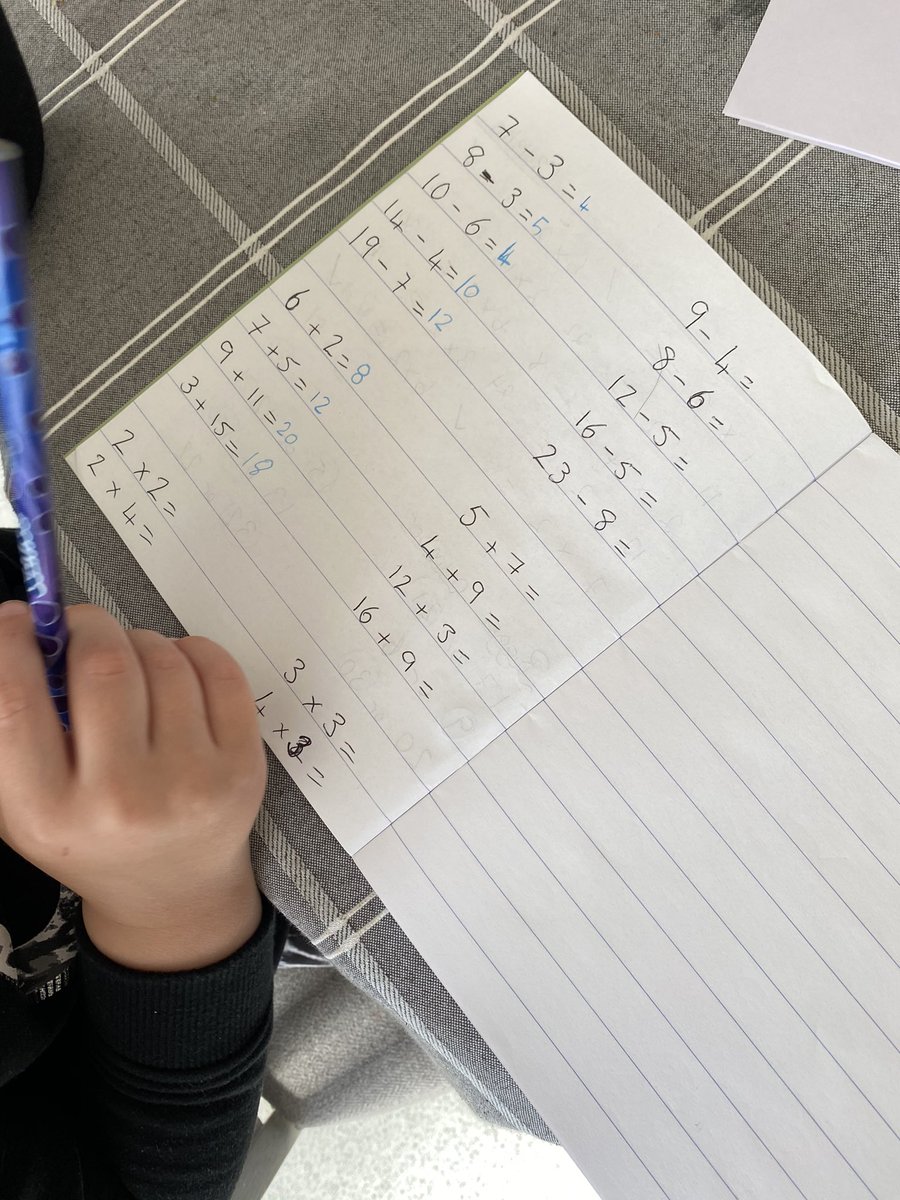 7 - 3 = 4
8 - 3 = 5
10 - 6 = 4
14 - 4 = 10
19 - 7 = 12
6 + 2 = 8
7 + 5 = 12
9 + 11 = 20
3 + 15 = 18
2 x 2 =
2 x 4 =
9 - 4 =
8 - 6 =
12 - 5 =
16 - 5 =
23 - 8 =
5 + 7 =
4 + 9 =
12 + 3 =
16 + 9 =
3 x 3 =
4 x =